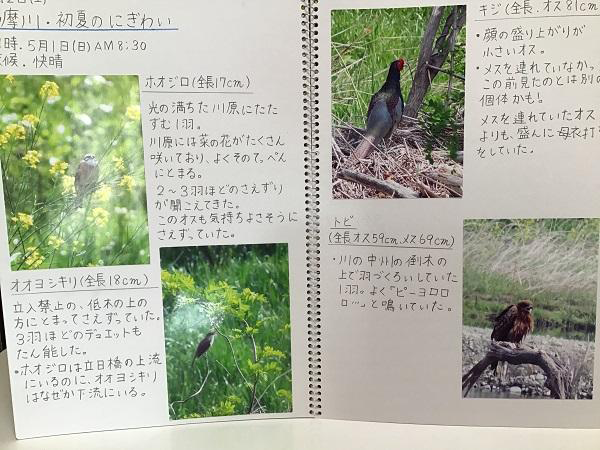 摩川・初夏のにぎわい
時. 5月1日(日)AM8:30
候. 快晴
ホオジロ(全長17cm)
光の満ちた川原にたた
ずむ1羽。
川原には菜の花がたくさん
咲いており、よくその
にとまる。
2〜3羽ほどのさえずり
が聞こえてきた。
このオスも気持ちよさそうに
さえずっていた。
オオヨシキリ(全長18cm)
立入禁止の、低木の上の
方にとまってさえずっていた。
3羽ほどのデュエットも
たん能した。
・ホオジロは立日橋の上流
にいるのに、オオヨシキリ
はなぜか下流にいる。
キジ(全長、オス81cm
・顔の盛り上がりが
小さいオス。
・メスを連れていなかっ
この前見たのとは別の
個体かも!
・メスを連れていたオス
よりも、盛んに母衣打
をしていた。
トビ
(全長オス59cm、メス69cm)
・川の中州の倒木の
上で羽づくろいしていた
1羽。よく「ピーヨロロ
ロ…」と鳴いていた。